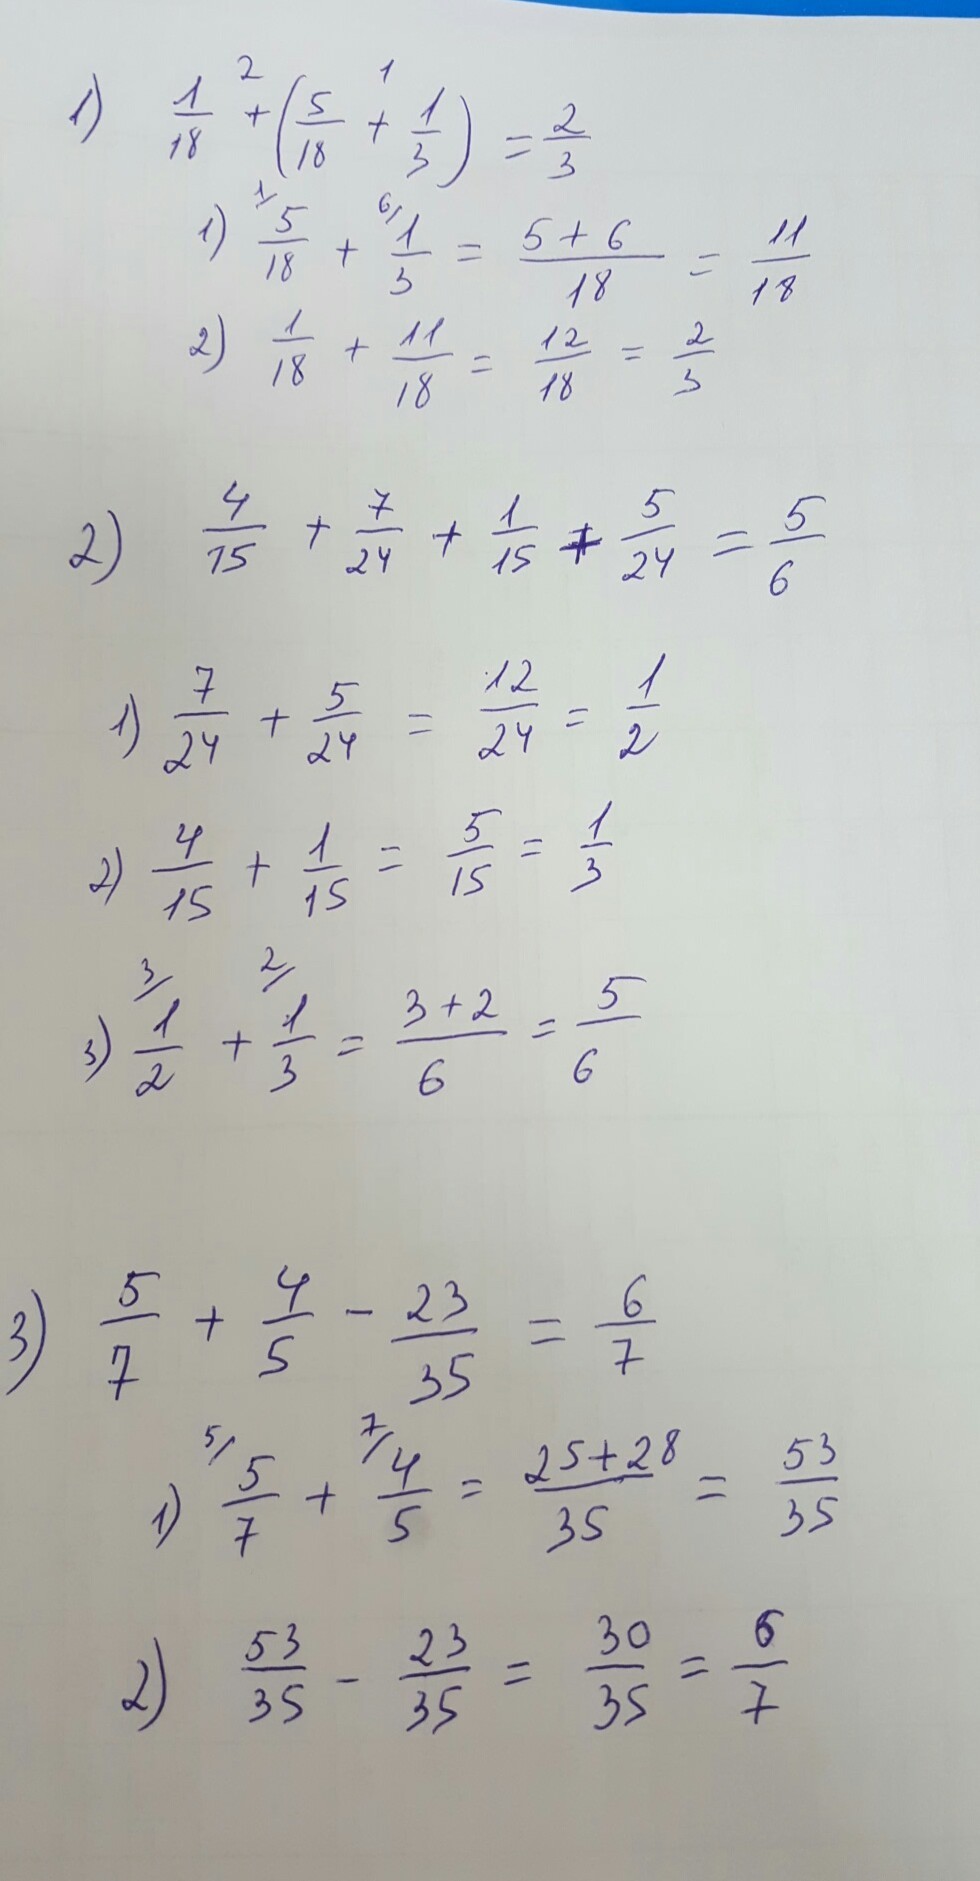 1) 1/18 + (5/18 + 1/3) = 2/3
2 1
1) 5/18 + 1/3 = (5 + 6)/18 = 11/18
1/ 6/
2) 1/18 + 11/18 = 12/18 = 2/3
2) 4/15 + 7/24 + 1/15 + 5/24 = 5/6
1) 7/24 + 5/24 = 12/24 = 1/2
2) 4/15 + 1/15 = 5/15 = 1/3
3/ 2/
3) 1/2 + 1/3 = (3 + 2)/6 = 5/6
3) 5/7 + 4/5 - 23/35 = 6/7
5/ 7/
1) 5/7 + 4/5 = (25 + 28)/35 = 53/35
2) 53/35 - 23/35 = 30/35 = 6/7